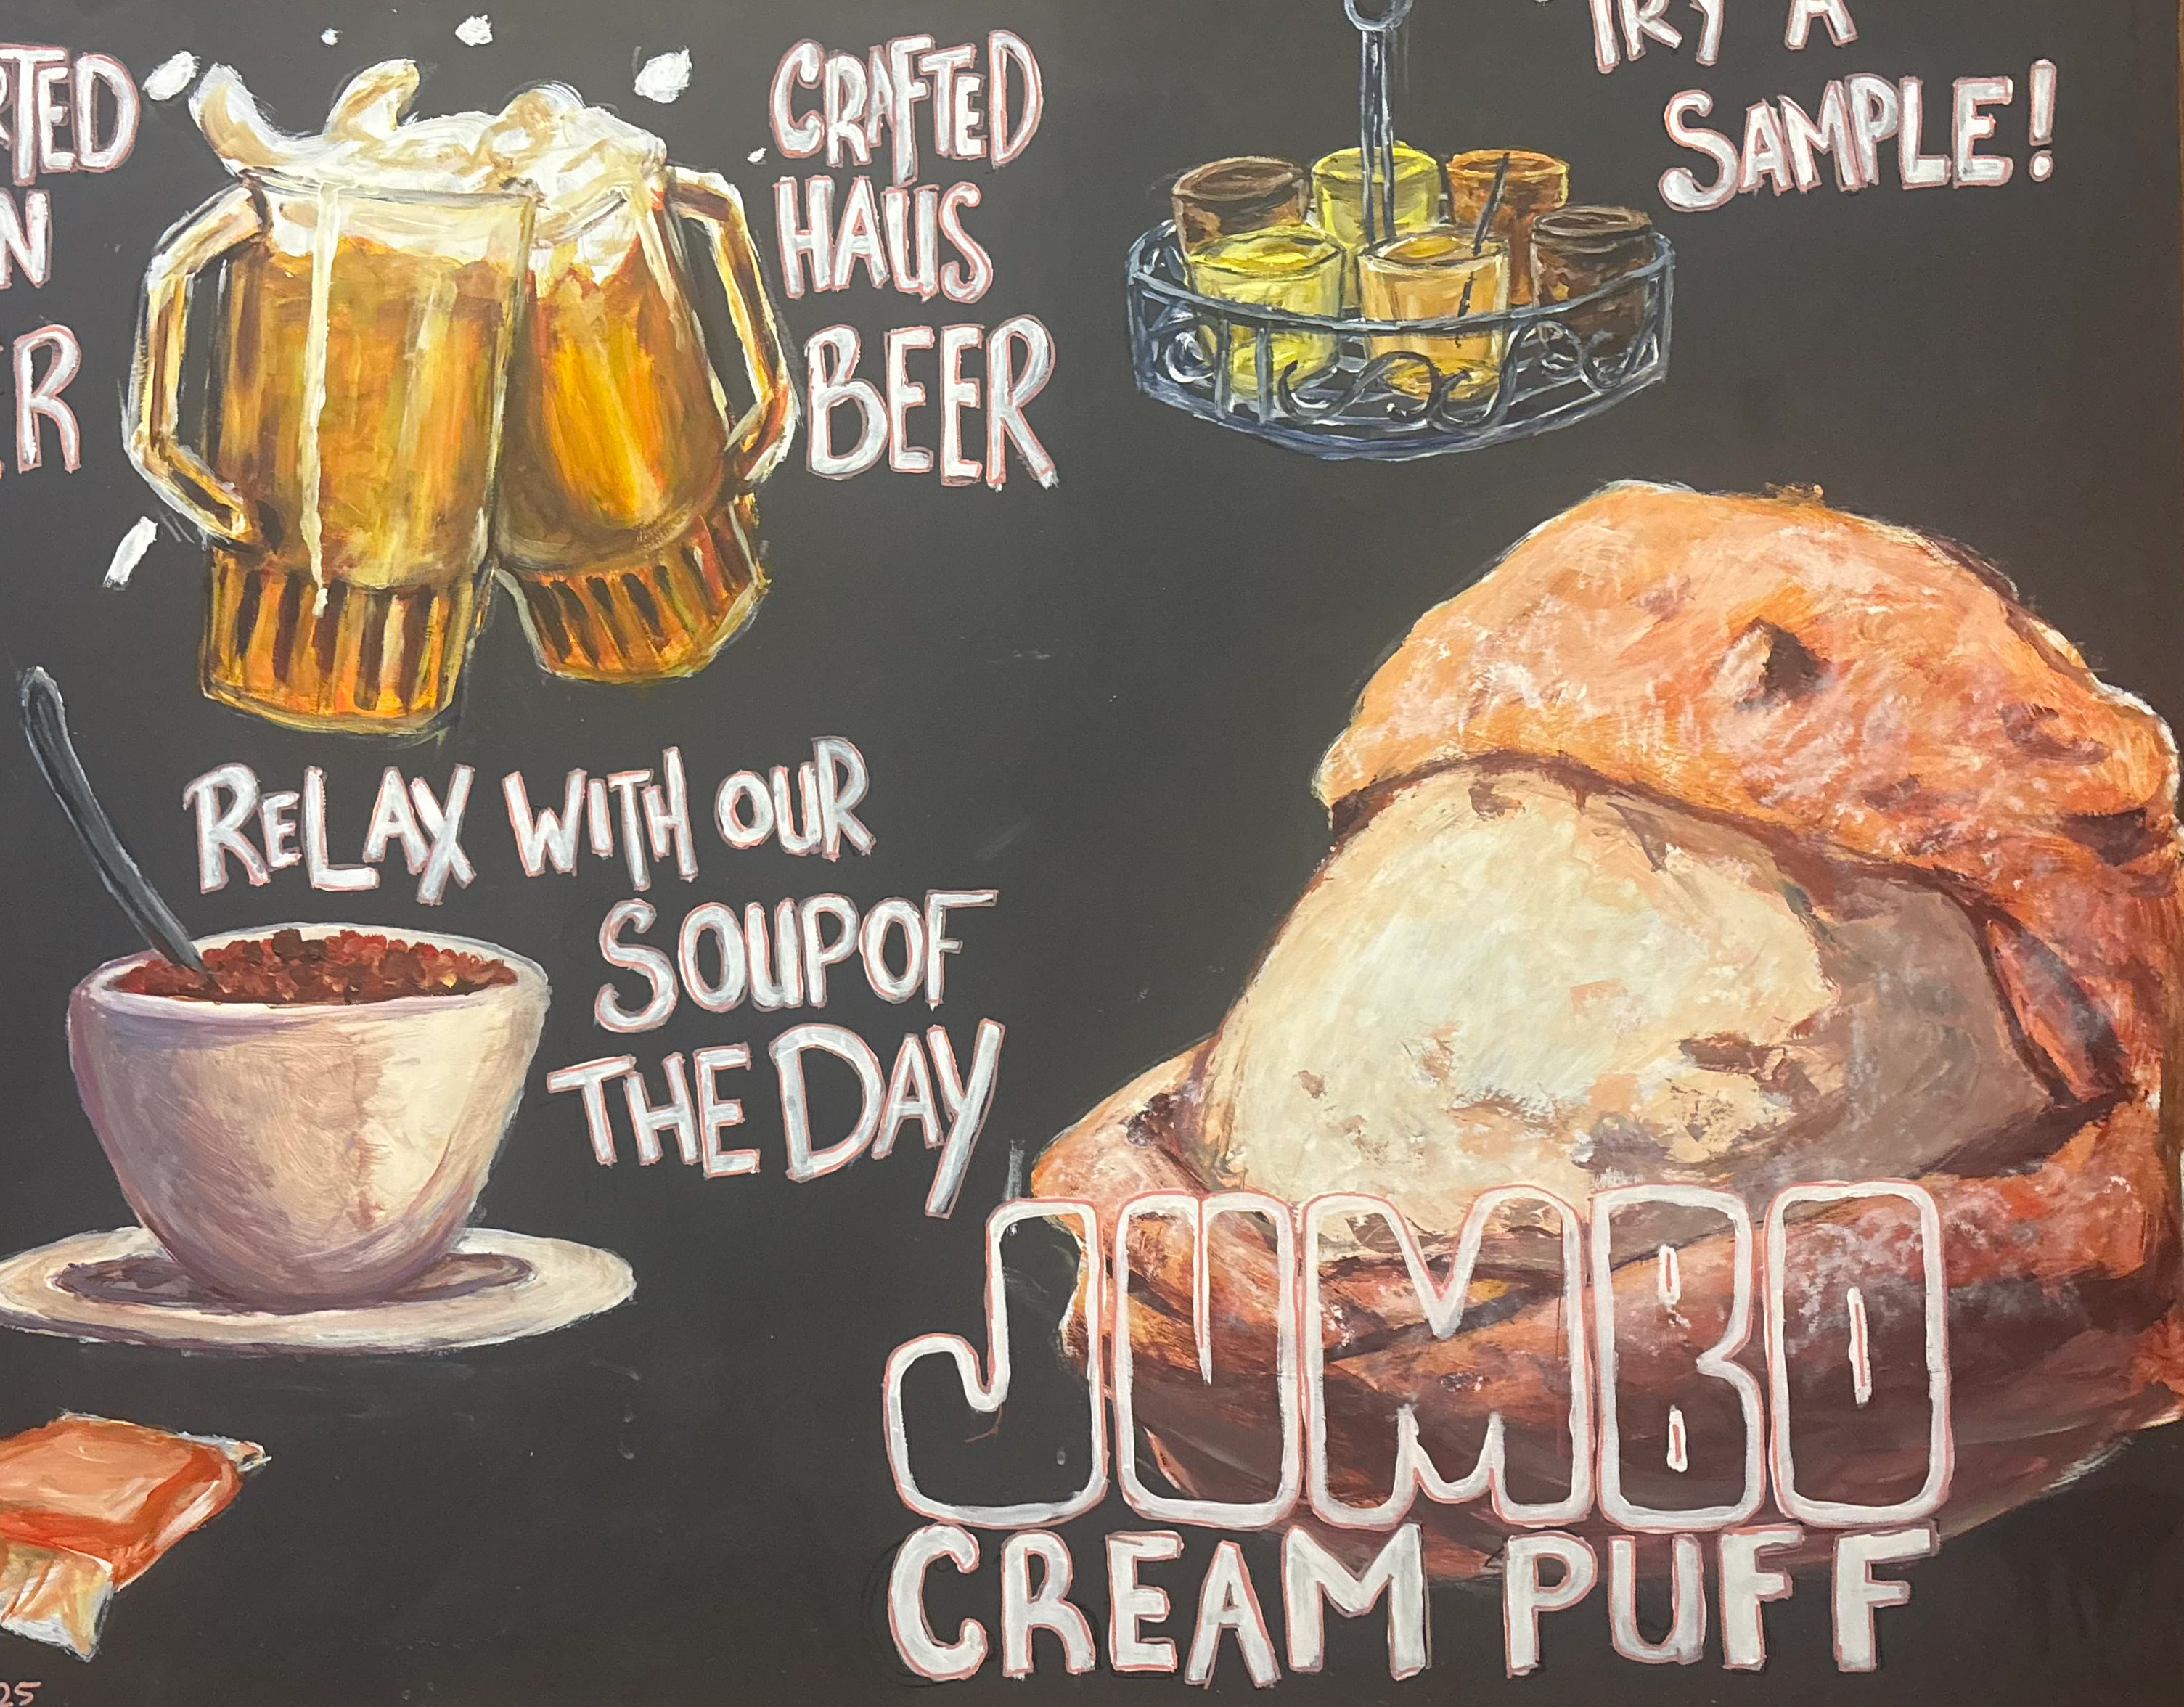 CRAFTED
HAUS
BEER
TRY A
SAMPLE!
RELAX WITH OUR
SOUP OF
THE DAY
JUMBO
CREAM PUFF
25